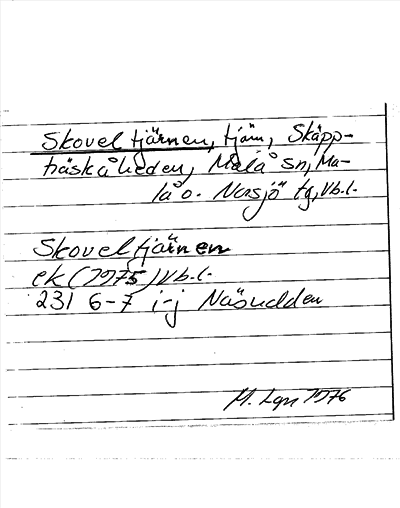 Skoveltjärnen, tjärn, Skäpp-
träskåheden, Malå sn, Ma-
lå o. Norsjö tg, Vb.l.
Skoveltjärnen
ek (1975) Vb.l.
231 6-7 i-j Näsudden
M. Lgn 1976